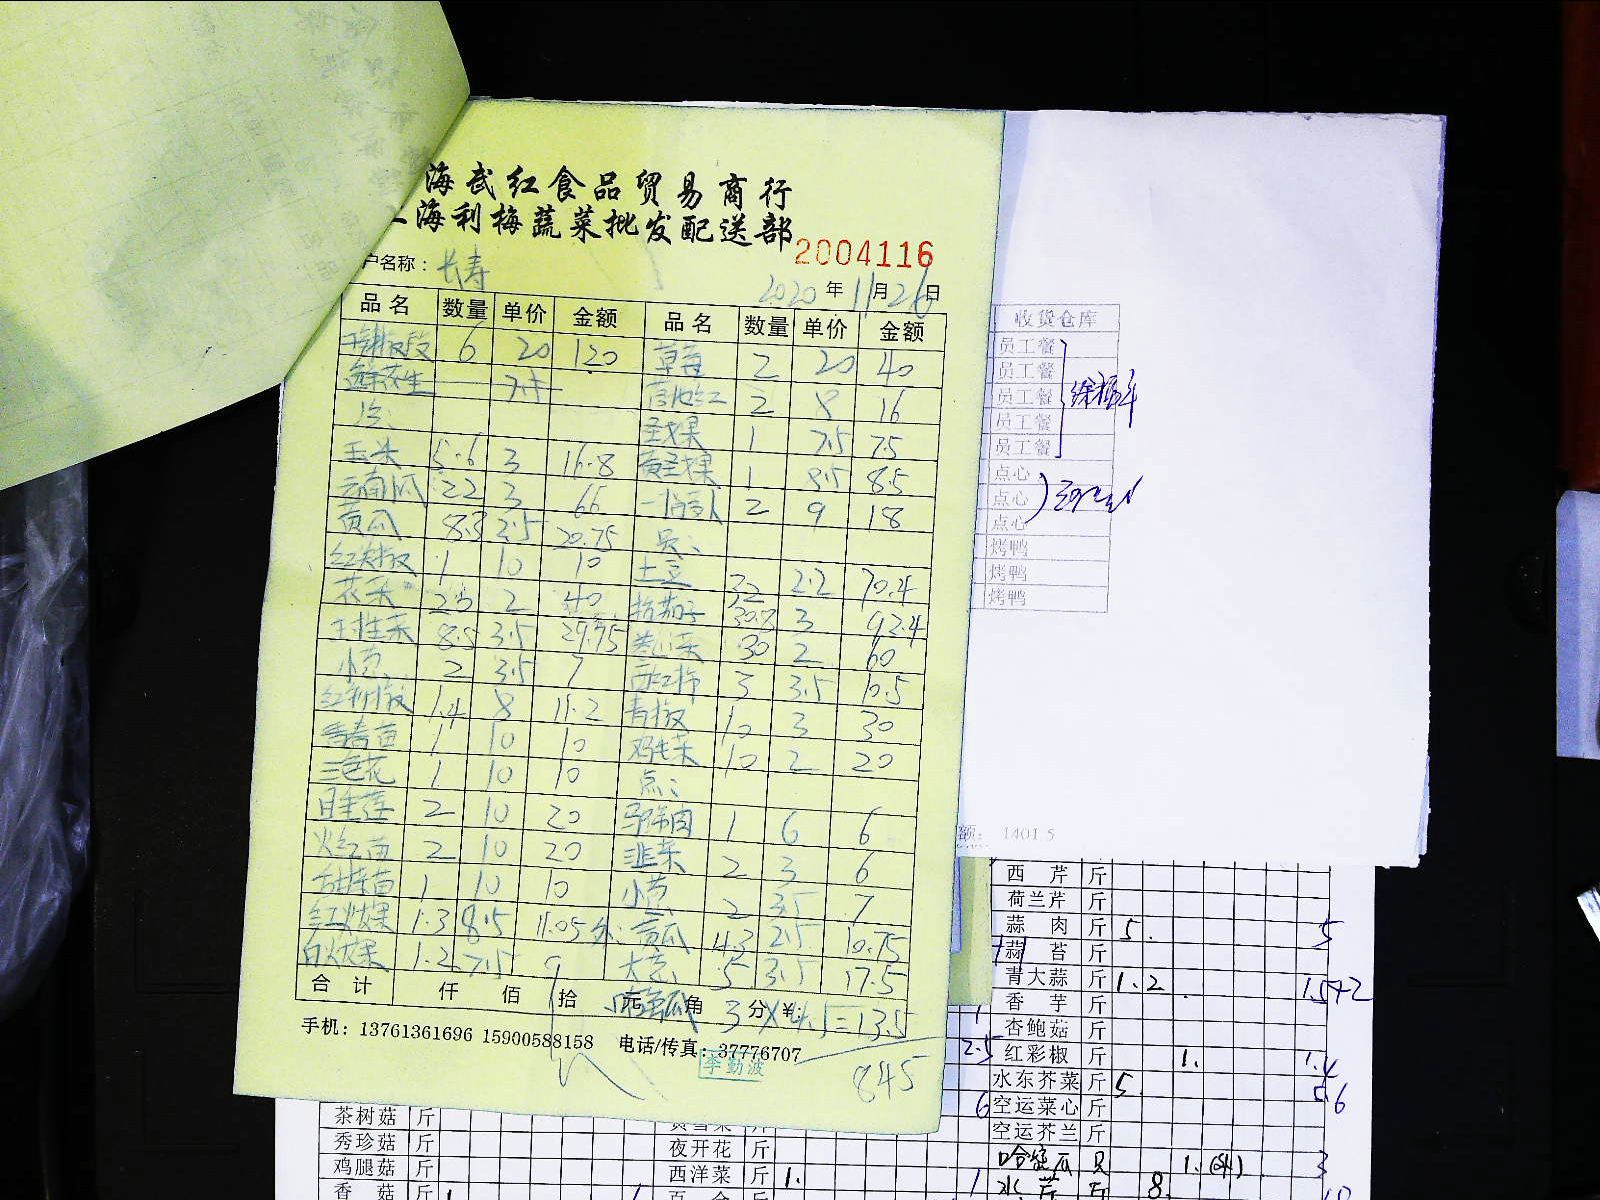 海武红食品贸易商行
上海利梅蔬菜批发配送部
2004116
户名称：长寿
2020年11月26日
品名 数量 单价 金额 品名 数量 单价 金额
6 20 120 草莓 2 20 40
鲜花生 2 8 16
冷: 圣女果 1 7.5 7.5
玉米 5.6 3 16.8 黄圣女果 1 8.5 8.5
云南瓜 22 3 66 2 9 18
黄瓜 8.3 2.5 20.75 员:
红尖椒 1 10 10 土豆 32 2.2 70.4
花菜 2 40 杭茄子 30.8 3 92.4
干生菜 8.5 3.5 29.75 卷心菜 30 2 60
小葱 2 3.5 7 西红柿 3 3.5 10.5
红彩椒 1.4 8 11.2 青椒 10 3 30
1 10 10 鸡毛菜 10 2 20
三色花 1 10 10 点:
2 10 20 1 6 6
火红苗 2 10 20 韭菜 2 3 6
甜菜苗 1 10 10 小葱 2 3.5 7
红火龙果 1.3 8.5 11.05 外: 黄瓜 4.3 2.5 10.75
白火龙果 1.2 7.5 9 大葱 5 3.5 17.5
合计 仟 佰 拾 元 角 分 ¥:
3×4.5=13.5
手机：13761361696 15900588158 电话/传真：37776707
李勤波
845
收货仓库
员工餐
员工餐
员工餐
员工餐
员工餐
点心
点心
点心
烤鸭
烤鸭
烤鸭
额: 1401.5
西芹 斤
荷兰芹 斤
蒜肉 斤 5. 5
蒜苔 斤
青大蒜 斤 1.2
香芋 斤
杏鲍菇 斤
红彩椒 斤 1. 1.4
水东芥菜 斤 5. 5.6
空运菜心 斤
空运芥兰 斤
哈密瓜 只 1. 3
水芹 斤 8.
1
2.5
6
茶树菇 斤
秀珍菇 斤 夜开花 斤
鸡腿菇 斤 西洋菜 斤 1. 1
香菇 斤 百合 斤